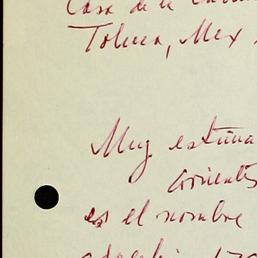 Casa de la
Toluca, Mex
Muy estima
corrientes
es el nombre